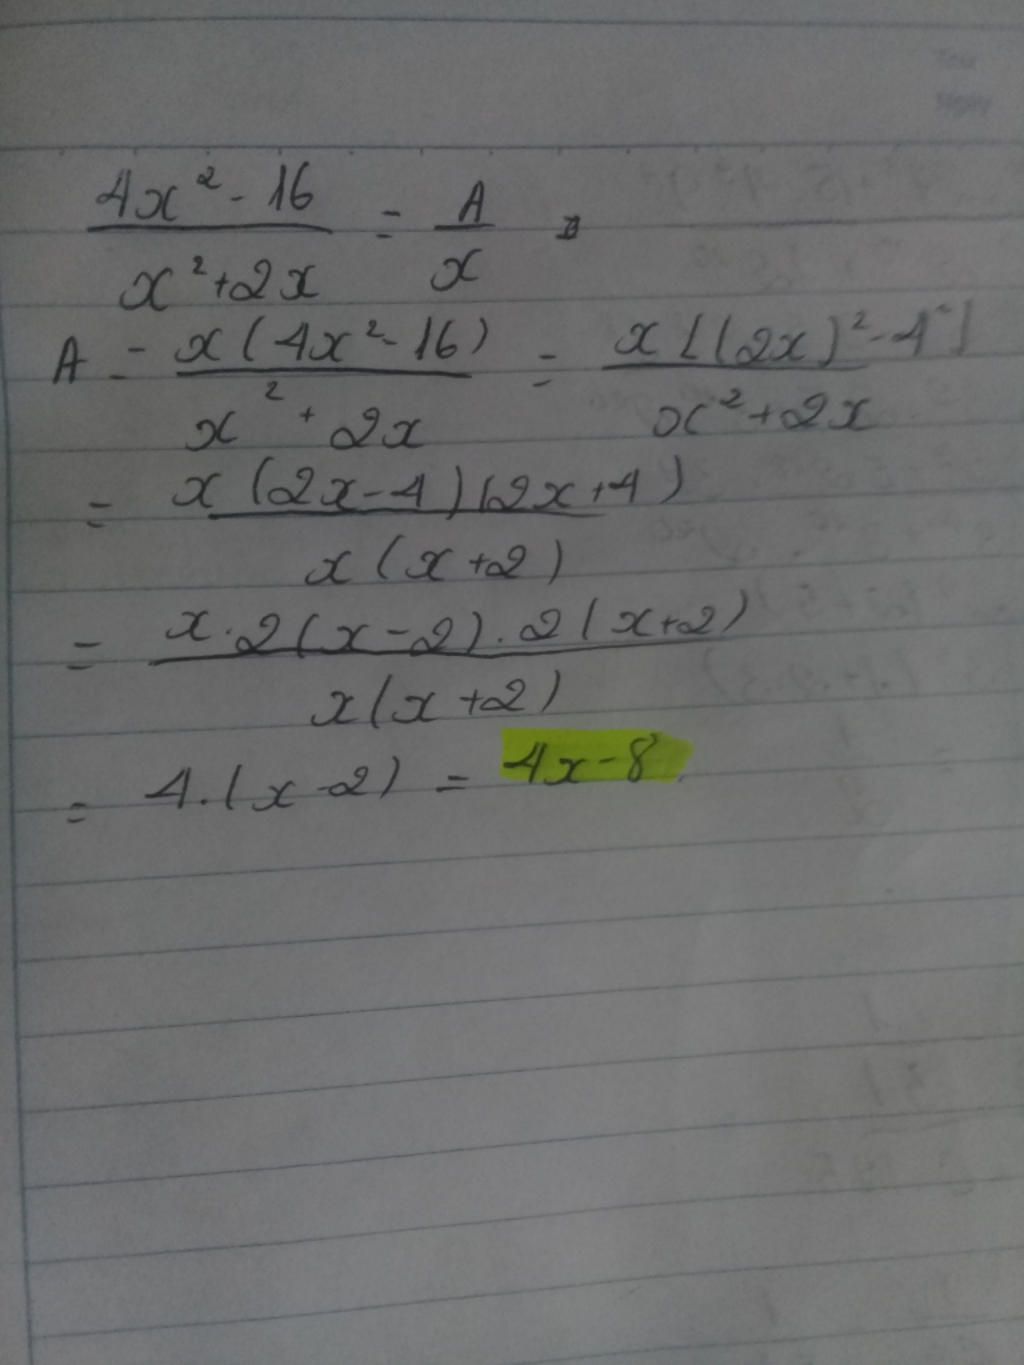 4x² - 16 / x² + 2x = A / x
A = x(4x² - 16) / x² + 2x = x[(2x)² - 4²] / x² + 2x
= x(2x - 4)(2x + 4) / x(x + 2)
= x . 2(x - 2) . 2(x + 2) / x(x + 2)
= 4 . (x - 2) = 4x - 8